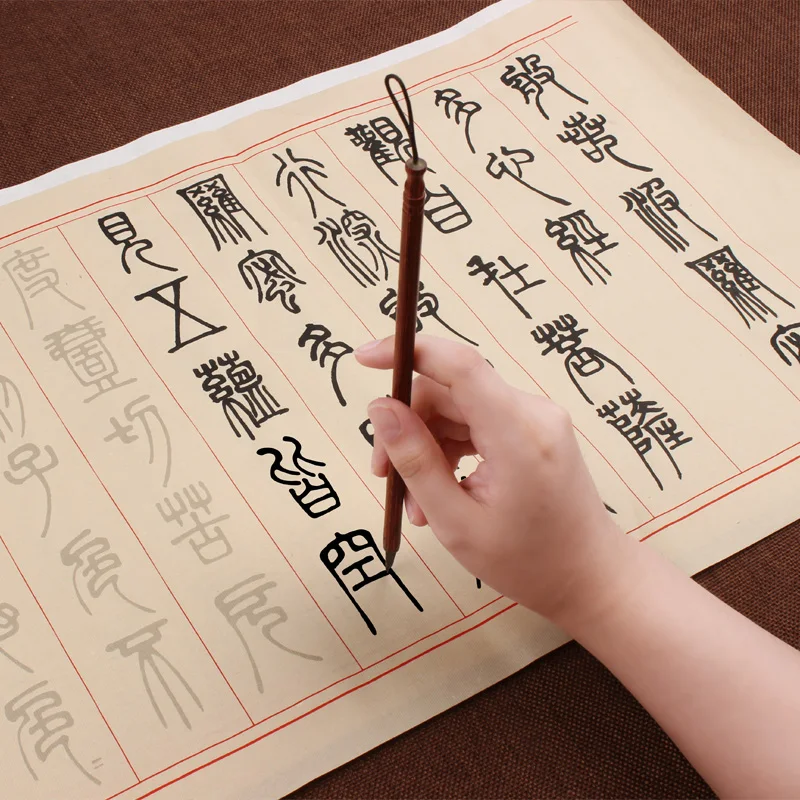 般若波羅蜜
多心經
觀自在菩薩
行深般
羅蜜多
見五蘊皆空
度壹切苦厄
子色不
色